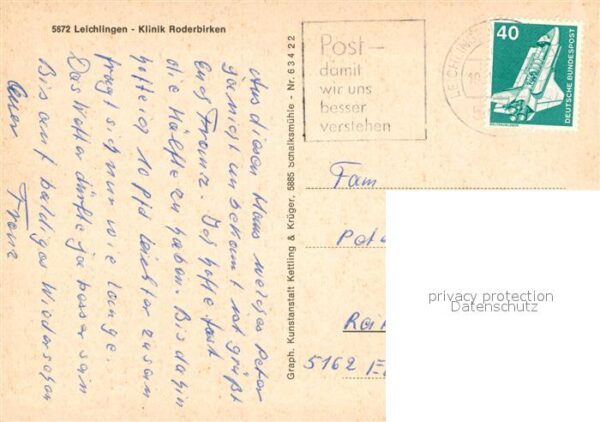 5672 Leichlingen - Klinik Roderbirken
Aus diesem Haus welches Peter
ja nicht unbekannt ist grüßt
Euch Franz. Ich hoffe fast
die Hälfte zu haben. Bis dahin
10 Pfd leichter zu sein
fragt sich nur wie lange.
Das Wetter dürfte ja besser sein
Bis auf baldiges Wiedersehen
Euer Franz
Graph. Kunstanstalt Kettling & Krüger, 5885 Schalksmühle - Nr. 63422
Post -
damit
wir uns
besser
verstehen
LEICHLINGEN
40
DEUTSCHE BUNDESPOST
Fam
Pete
Rei
5162
privacy protection
Datenschutz